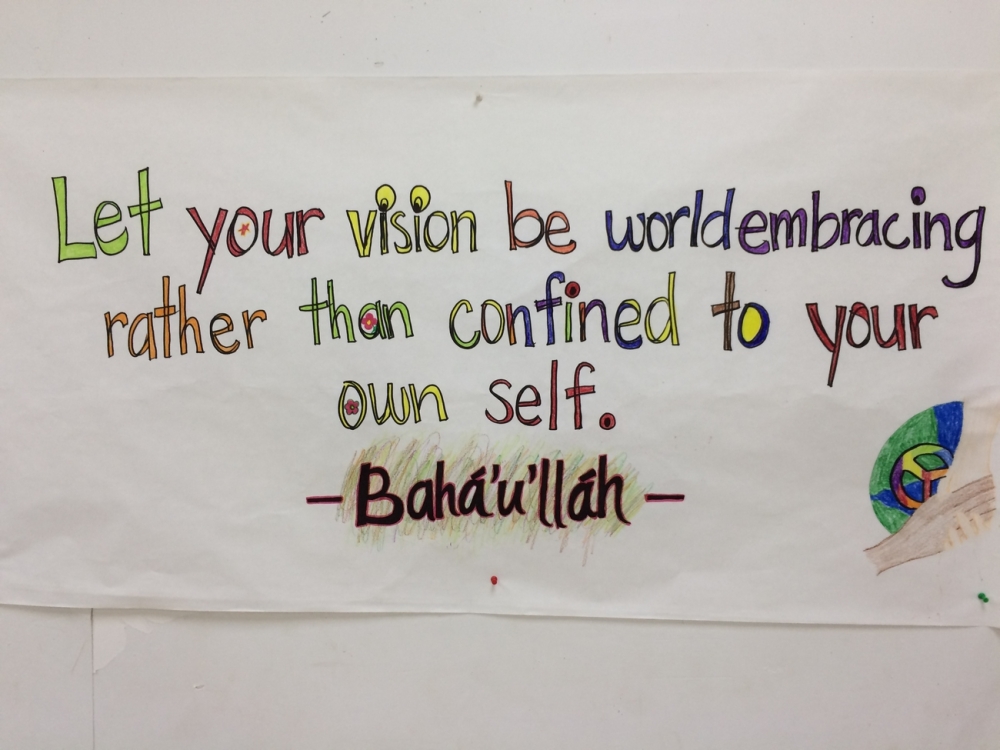 Let your vision be worldembracing
rather than confined to your
own self.
— Bahá'u'lláh —